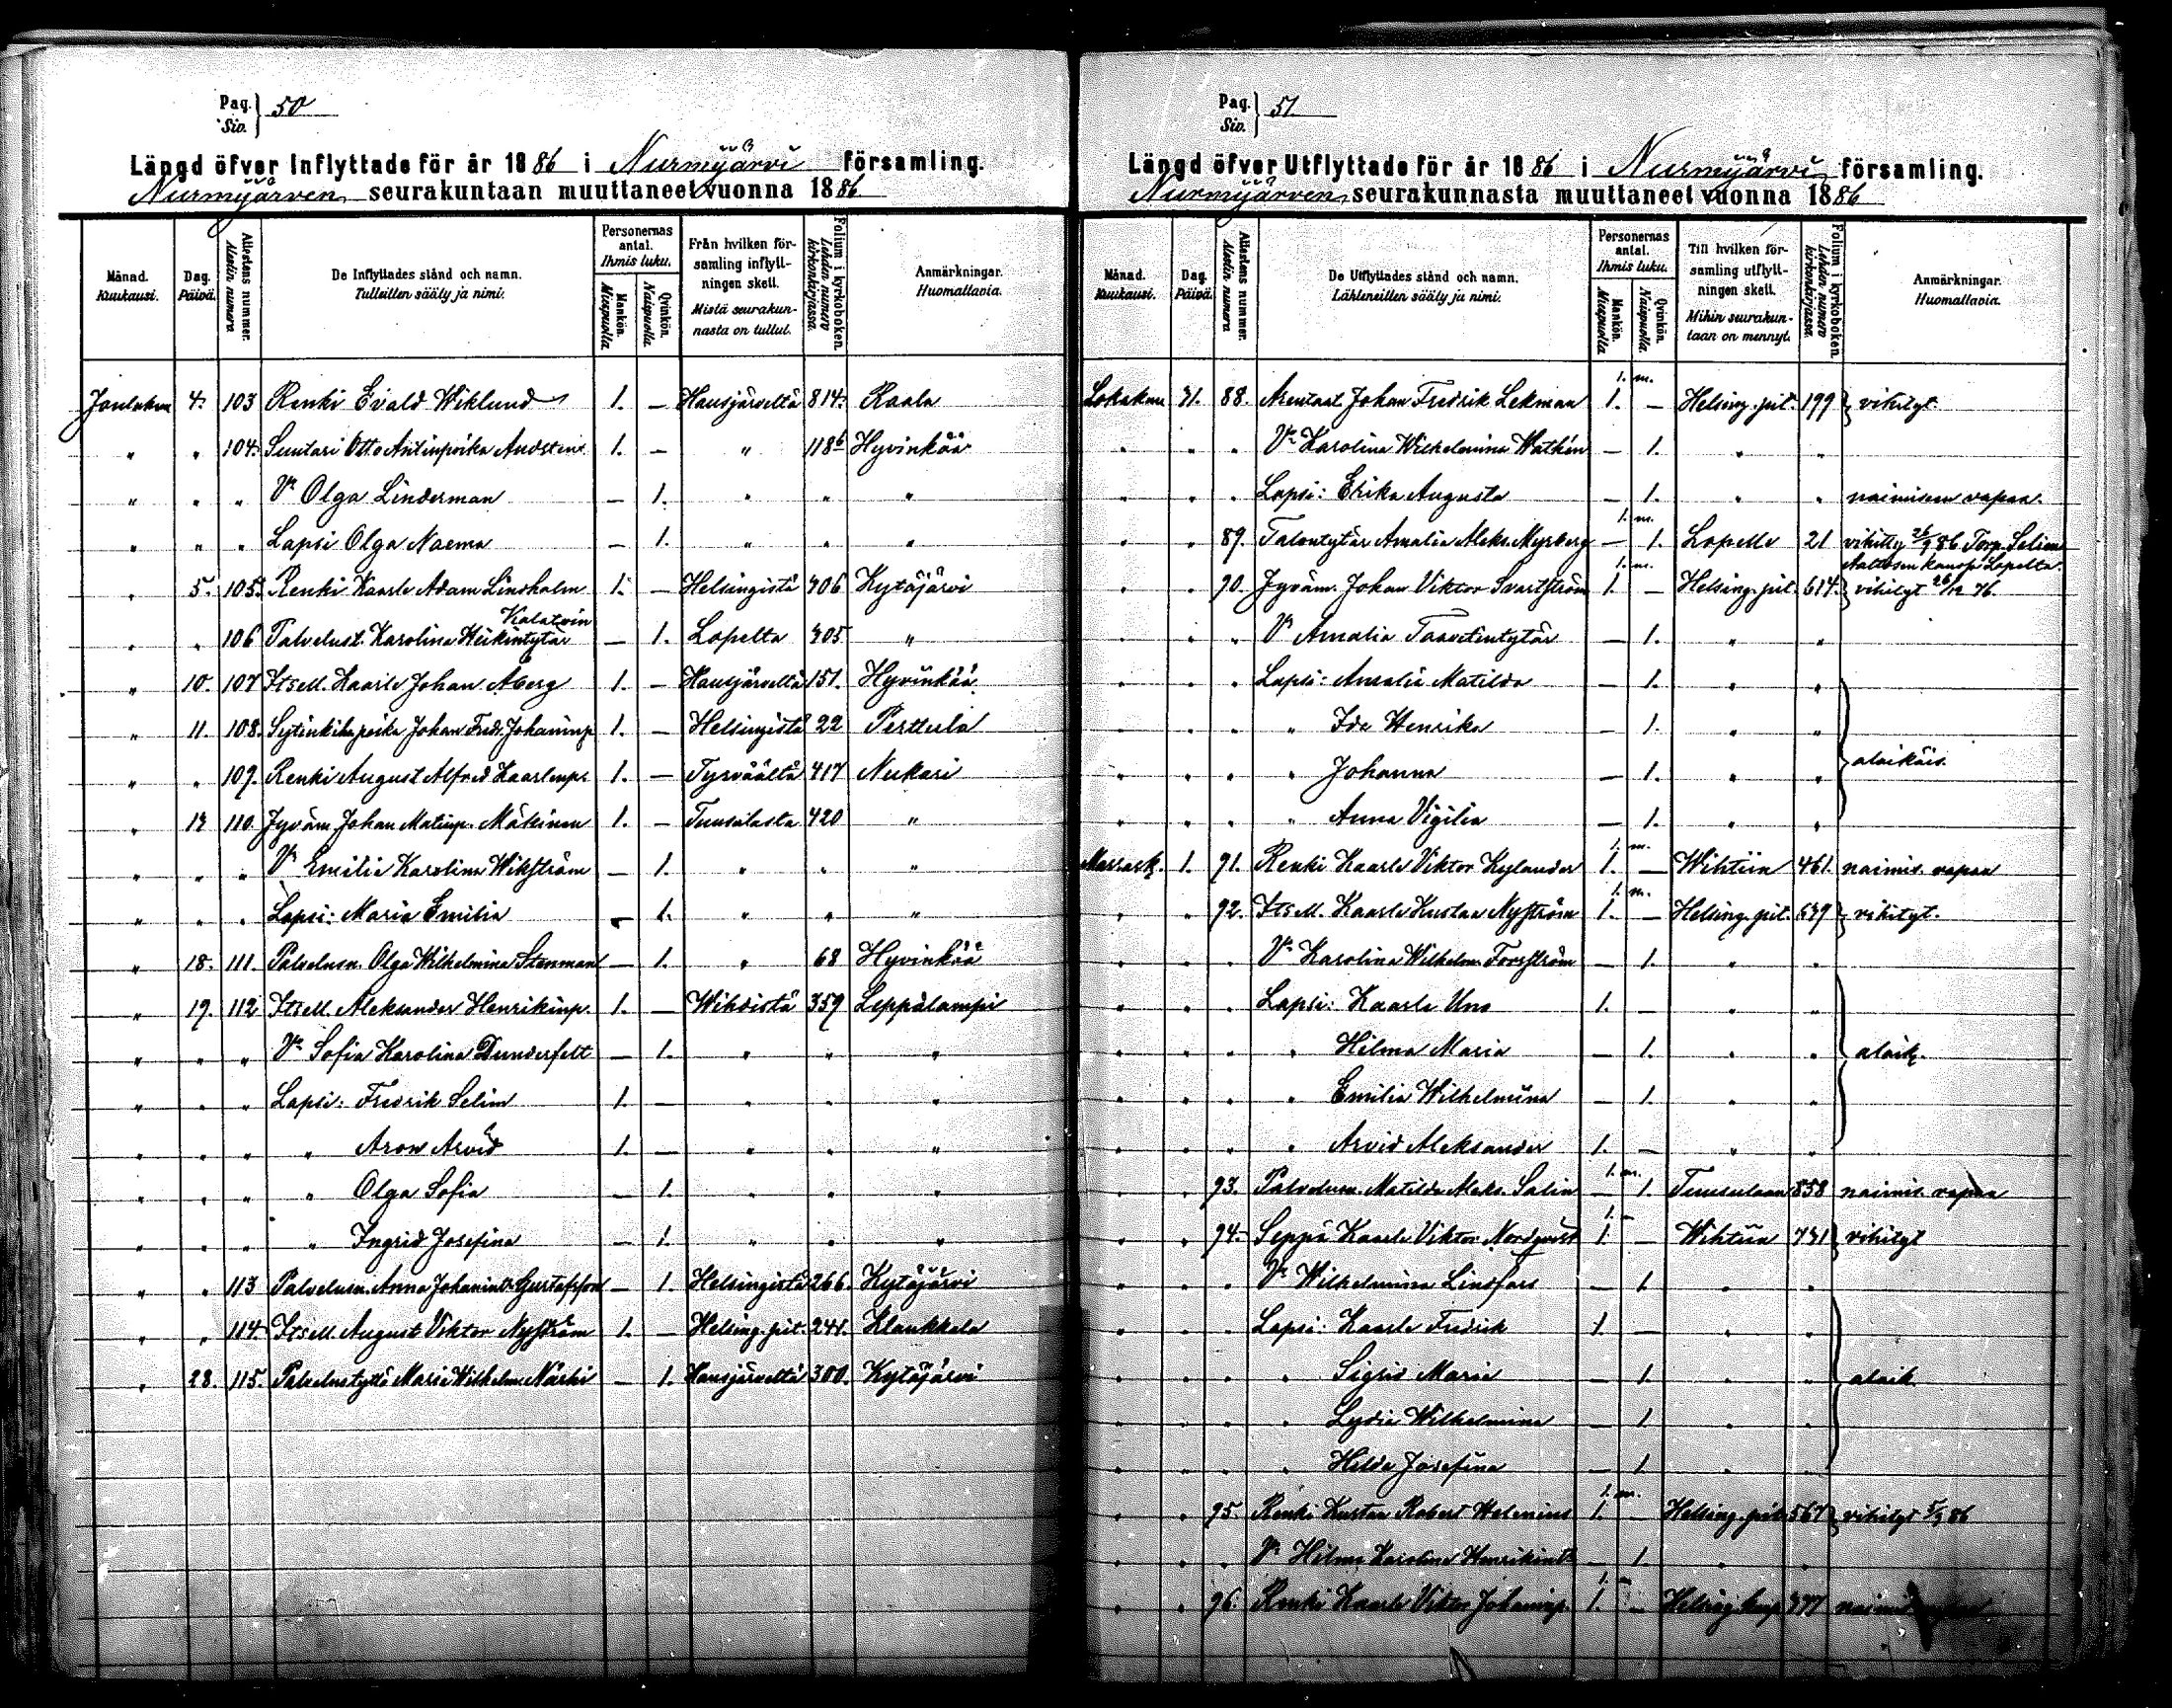 Pag. Siv. } 50
Längd öfver Inflyttade för år 1886 i Nurmijärvi församling.
Nurmijärven seurakuntaan muuttaneet vuonna 1886
Månad. Kuukausi. | Dag. Päivä. | Attestens nummer. Alestin numero | De Inflyttades stånd och namn. Tulleitten sääty ja nimi. | Personernas antal. Ihmis luku. Mankön. Miespuolia Qvinkön. Naispuolia. | Från hvilken församling inflyttningen skett. Mistä seurakunnasta on tullut. | Folium i kyrkoboken. Lehden numero kirkonkirjassa. | Anmärkningar. Huomattavia.
Joulukuu 4. 103 Renki Evald Wiklund 1. — Hausjärveltä 814. Raala
" " 104. Suutari Otto Antinpoika Andsten 1. — " 118b Hyvinkää
" " " Vo Olga Linderman — 1. " " "
" " " Lapsi Olga Naema — 1. " " "
" 5. 105. Renki Kaarle Adam Lindholm 1. — Helsingistä 406 Kytäjärvi
" " 106 Palvelust. Karolina Heikintytär Kalatoin — 1. Lopelta 405 "
" 10. 107 Itsell. Kaarle Johan Åberg 1. — Hausjärveltä 151. Hyvinkää
" 11. 108. Johan Fredr. Johaninp. 1. — Helsingistä 22 Perttula
" " 109. Renki August Alfred Kaarlenp. 1. — Tyrväältä 417 Nukari
" 14 110. Jyväm. Johan Matinp. Mäkinen 1. — Tuusulasta 420 "
" " " Vo Emilia Karolina Wikström — 1. " " "
" " " Lapsi: Maria Emilia — 1. " " "
" 18. 111. Palvelusn. Olga Wilhelmina Stenman — 1. " 68 Hyvinkää
" 19. 112 Itsell. Aleksander Henrikinp. 1. — Wihdistä 359 Leppälampi
" " " Vo Sofia Karolina Dunderfelt — 1. " " "
" " " Lapsi: Fredrik Selim 1. — " " "
" " " " Aron Arvid 1. — " " "
" " " " Olga Sofia — 1. " " "
" " " " Ingrid Josefina — 1. " " "
" " 113 Palvelusn. Anna Johanint. Gustafsson — 1. Helsingistä 266. Kytäjärvi
" " 114. Itsell. August Viktor Nyström 1. — Helsing. pit. 241. Klaukkala
" 28. 115. Palvelustyttö Maria Wilhelm. Närhi — 1. Hausjärveltä 300. Kytäjärvi
Pag. Siv. } 51.
Längd öfver Utflyttade för år 1886 i Nurmijärvi församling.
Nurmijärven seurakunnasta muuttaneet vuonna 1886
Månad. Kuukausi. | Dag. Päivä. | Attestens nummer. Alestin numero | De Utflyttades stånd och namn. Lähteneitten sääty ja nimi. | Personernas antal. Ihmis luku. Mankön. Miespuolia Qvinkön. Naispuolia. | Till hvilken församling utflyttningen skett. Mihin seurakuntaan on mennyt. | Folium i kyrkoboken. Lehden numero kirkonkirjassa. | Anmärkningar. Huomattavia.
Lokakuu 31. 88. Arentaat. Johan Fredrik Lekman 1. — Helsing. pit. 199 } vihityt.
" " " Vo Karolina Wilhelmina Wathén — 1. " "
" " " Lapsi: Erika Augusta — 1. " " naimisen vapaa.
" " 89. Talontytär Amalia Aleks. Myrberg — 1. Lopelle 21 vihitty 26/9 86 Torp. Selim
kanssa Lopelta.
" " 90. Jyväm. Johan Viktor Svartström 1. — Helsing. pit. 614. } vihityt 26/12 76.
" " " Vo Amalia Taavetintytär — 1. " "
" " " Lapsi: Amalia Matilda — 1. " "
" " " " Ida Henrika — 1. " "
" " " " Johanna — 1. " " } alaikäis.
" " " " Anna Vigilia — 1. " "
Marrask. 1. 91. Renki Kaarle Viktor Kylander 1. — Wihtiin 461. naimis. vapaa
" " 92. Itsell. Kaarle Kustaa Nyström 1. — Helsing. pit. 649 } vihityt.
" " " Vo Karolina Wilhelm. Forsström — 1. " "
" " " Lapsi: Kaarle Uno 1. — " "
" " " " Hilma Maria — 1. " " } alaik.
" " " " Emilia Wilhelmina — 1. " "
" " " " Arvid Aleksander 1. — " "
" " 93. Palvelusn. Matilda Aleks. Salin — 1. Tuusulaan 858 naimis. vapaa
" " 94. Seppä Kaarle Viktor Nordqvist 1. — Wihtiin 431 } vihityt
" " " Vo Wilhelmina Lindfors — 1. " "
" " " Lapsi: Kaarle Fredrik 1. — " "
" " " " Sigrid Maria — 1. " " } alaik.
" " " " Lydia Wilhelmina — 1. " "
" " " " Hilda Josefina — 1. " "
" " 95. Renki Kustaa Robert Helenius 1. — Helsing. pit. 567 } vihityt 5/9 86
" " " Vo Hilma Karolina Henrikint. — 1. " "
" " 96. Renki Kaarle Viktor Johaninp. 1. — Helsing. kaup. 377 naimis.